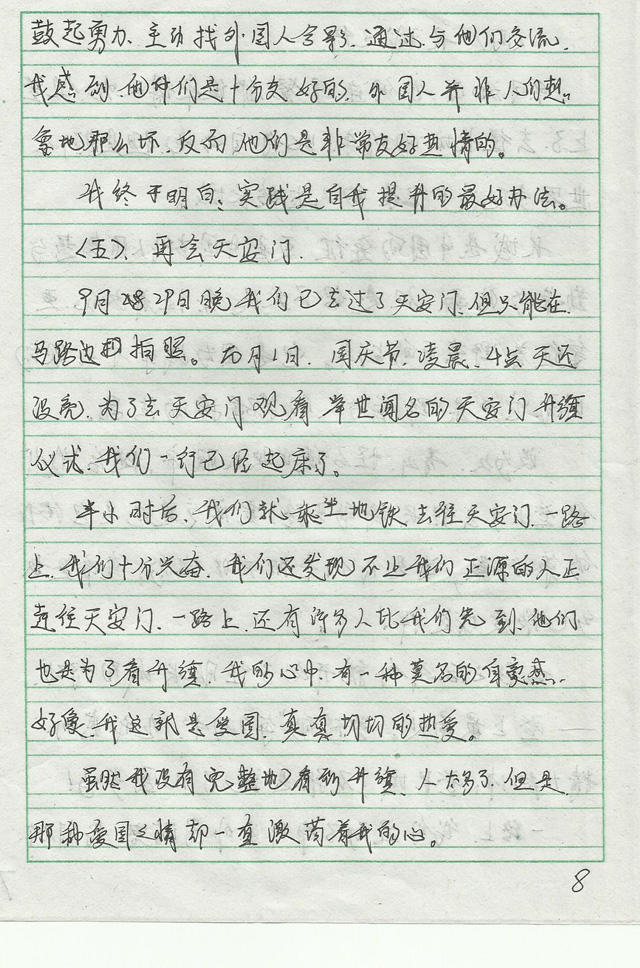 鼓起勇力、主动找外国人合影、通过与他们交流、
我感到他们是十分友好的、外国人并非人们想
象地那么坏、反而他们是非常友好热情的。
我终于明白：实践是自我提升的最好办法。
〈五〉、再会天安门.
9月29日晚我们已去过了天安门、但只能在
马路边拍照。而月1日、国庆节、凌晨、4点天还
没亮、为了去天安门观看举世闻名的天安门升旗
仪式、我们一行已经起床了。
半小时后、我们就乘坐地铁去往天安门、一路
上、我们十分兴奋、我们还发现不止我们正源的人正
走往天安门、一路上、还有许多人比我们先到、他们
也是为了看升旗、我的心中、有一种莫名的自豪感、
好像、我这就是爱国、真真切切的热爱。
虽然我没有完整地看到升旗、人太多了、但是
那种爱国之情却一直激荡着我的心。
8